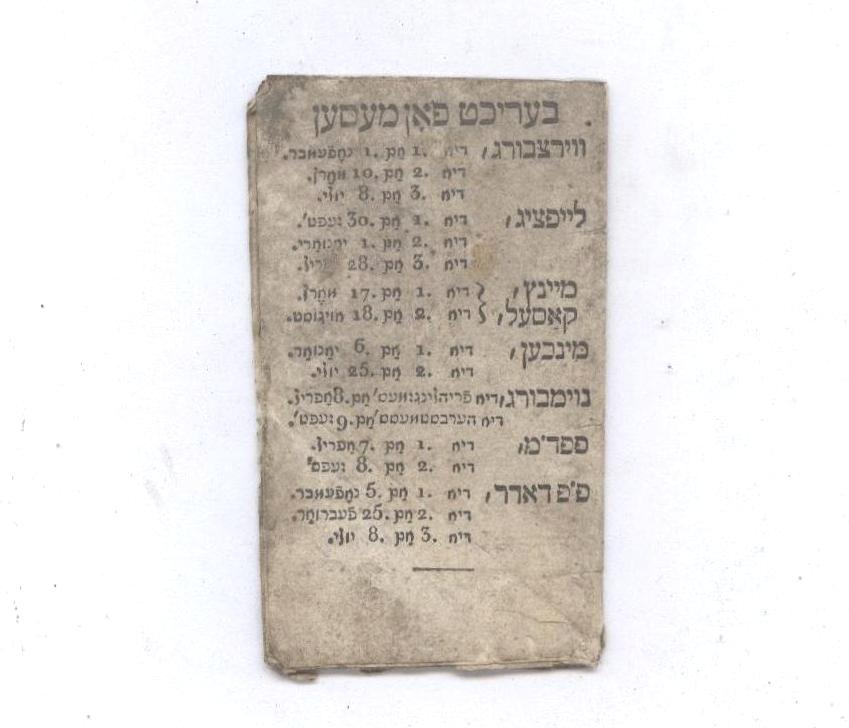 בעריכט פאָן מעסען
ווירצבורג, דיא 1. אַם 1. נאָפֿעמבר.
דיא 2. אַם 10. מאַרץ.
דיא 3. אַם 8. יולי.
לייפציג, דיא 1. אַם 30. זעפט'.
דיא 2. אַם 1. יאַנואַרי.
דיא 3. אַם 28.
מיינץ, דיא 1. אַם 17. מאַרץ.
קאַסעל, דיא 2. אַם 18. אויגוסט.
מינכען, דיא 1. אַם 6. יאַנואַר.
דיא 2. אַם 25. יולי.
נוימבורג, דיא פריהלינגזמעס' אַם 8. אַפריל.
דיא הערבסטמעסס' אַם 9. זעפט'.
פפד״מ, דיא 1. אַם 7. אַפריל.
דיא 2. אַם 8. זעפט'
פ״פ דאדר, דיא 1. אַם 5. נאָפֿעמבר.
דיא 2. אַם 25. פֿעברואַר.
דיא 3. אַם 8. יולי.